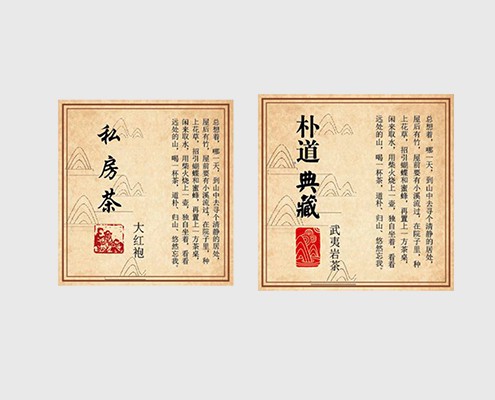 私房茶
大红袍
总想着，哪一天，到山中去寻个清静的居处，
屋后有竹，屋前要有小溪流过，在院子里，种
上花草，招引蝴蝶和蜜蜂，再置上一方茶桌，
闲来取水，用柴火烧上一壶，独自坐着，看看
远处的山，喝一杯茶，道朴，归山，悠然忘我。
朴道典藏
武夷岩茶
总想着，哪一天，到山中去寻个清静的居处，
屋后有竹，屋前要有小溪流过，在院子里，种
上花草，招引蝴蝶和蜜蜂，再置上一方茶桌，
闲来取水，用柴火烧上一壶，独自坐着，看看
远处的山，喝一杯茶，道朴，归山，悠然忘我。